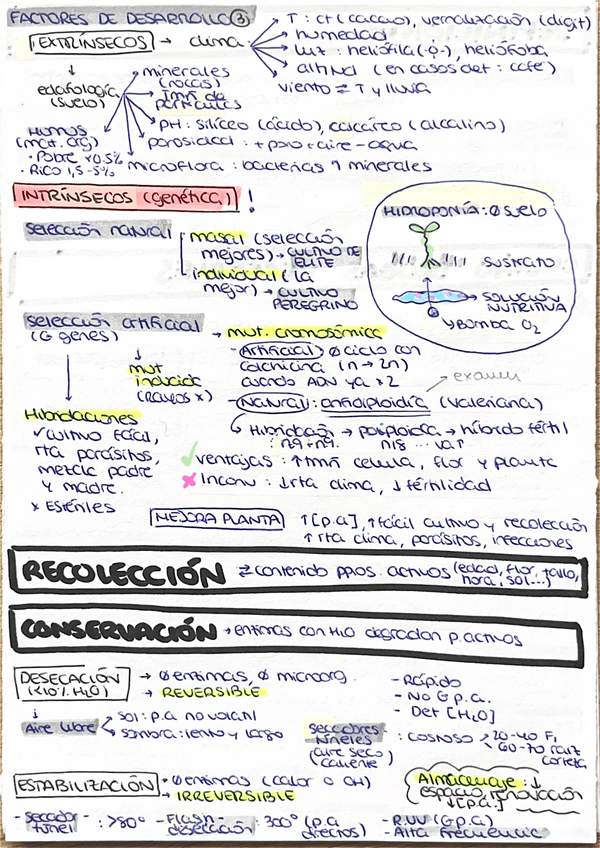 FACTORES DE DESARROLLO ③
EXTRÍNSECOS → clima
T: ct (cacao), vernalización (digit)
humedad
luz: heliófila (-ϙ-), heliófoba
altitud (en casos det: café)
viento ⇄ T y lluvia
edafología (suelo)
minerales (rocas)
Tmñ de partículas
PH: silíceo (ácido), calcáreo (alcalino)
porosidad: + poro + aire - agua
microflora: bacterias ↑ minerales
Humus (mat. org)
· Pobre <0.5%
· Rico 1,5-5%
INTRÍNSECOS (genética) !
selección natural
masal (selección mejores) → CULTIVO DE ELITE
individual (la mejor) → CULTIVO PEREGRINO
HIDROPONÍA: Ø suelo
SUSTRATO
SOLUCIÓN NUTRITIVA
BOMBA O₂
selección artificial (G genes)
→ mut. cromosómica
- Artificial: Ø ciclo con colchicina (n → 2n) cuando ADN ya x2
mut inducida (Rayos x)
→ examen
- Natural: anfidiploidía (valeriana)
↳ Hibridación → poliploidía → híbrido fértil
Hibridaciones
✓ cultivo fácil, rta parásitos, mezcla padre y madre.
x Estériles
✓ ventajas: ↑ tmñ celula, flor y planta
✗ Inconv: ↓ rta clima, ↓ fertilidad
MEJORA PLANTA ↑ [p.a], ↑ fácil cultivo y recolección
↑ rta clima, parásitos, infecciones
RECOLECCIÓN ⇄ contenido ppos. activos (edad, flor, tallo, hora, sol...)
CONSERVACIÓN → enzimas con H₂O degradan p. activos
DESECACIÓN (<10% H₂O)
→ Ø enzimas, Ø microorg.
→ REVERSIBLE
- Rápido
- No G p.a.
- Det [H₂O]
Aire libre
sol: p.a no volátil
sombra: lento y largo
secadores túneles (aire seco) (caliente)
: costoso
20-40 F,
60-70 raíz corteza
ESTABILIZACIÓN
· Ø enzimas (calor o OH)
→ IRREVERSIBLE
Almacenaje: ↓ espacio, renovación ↓ [p.a]
- secador túnel : >80°
- Flash desecación : 300° (p.a directos)
- R.UV (G p.a)
- Alta frecuencia